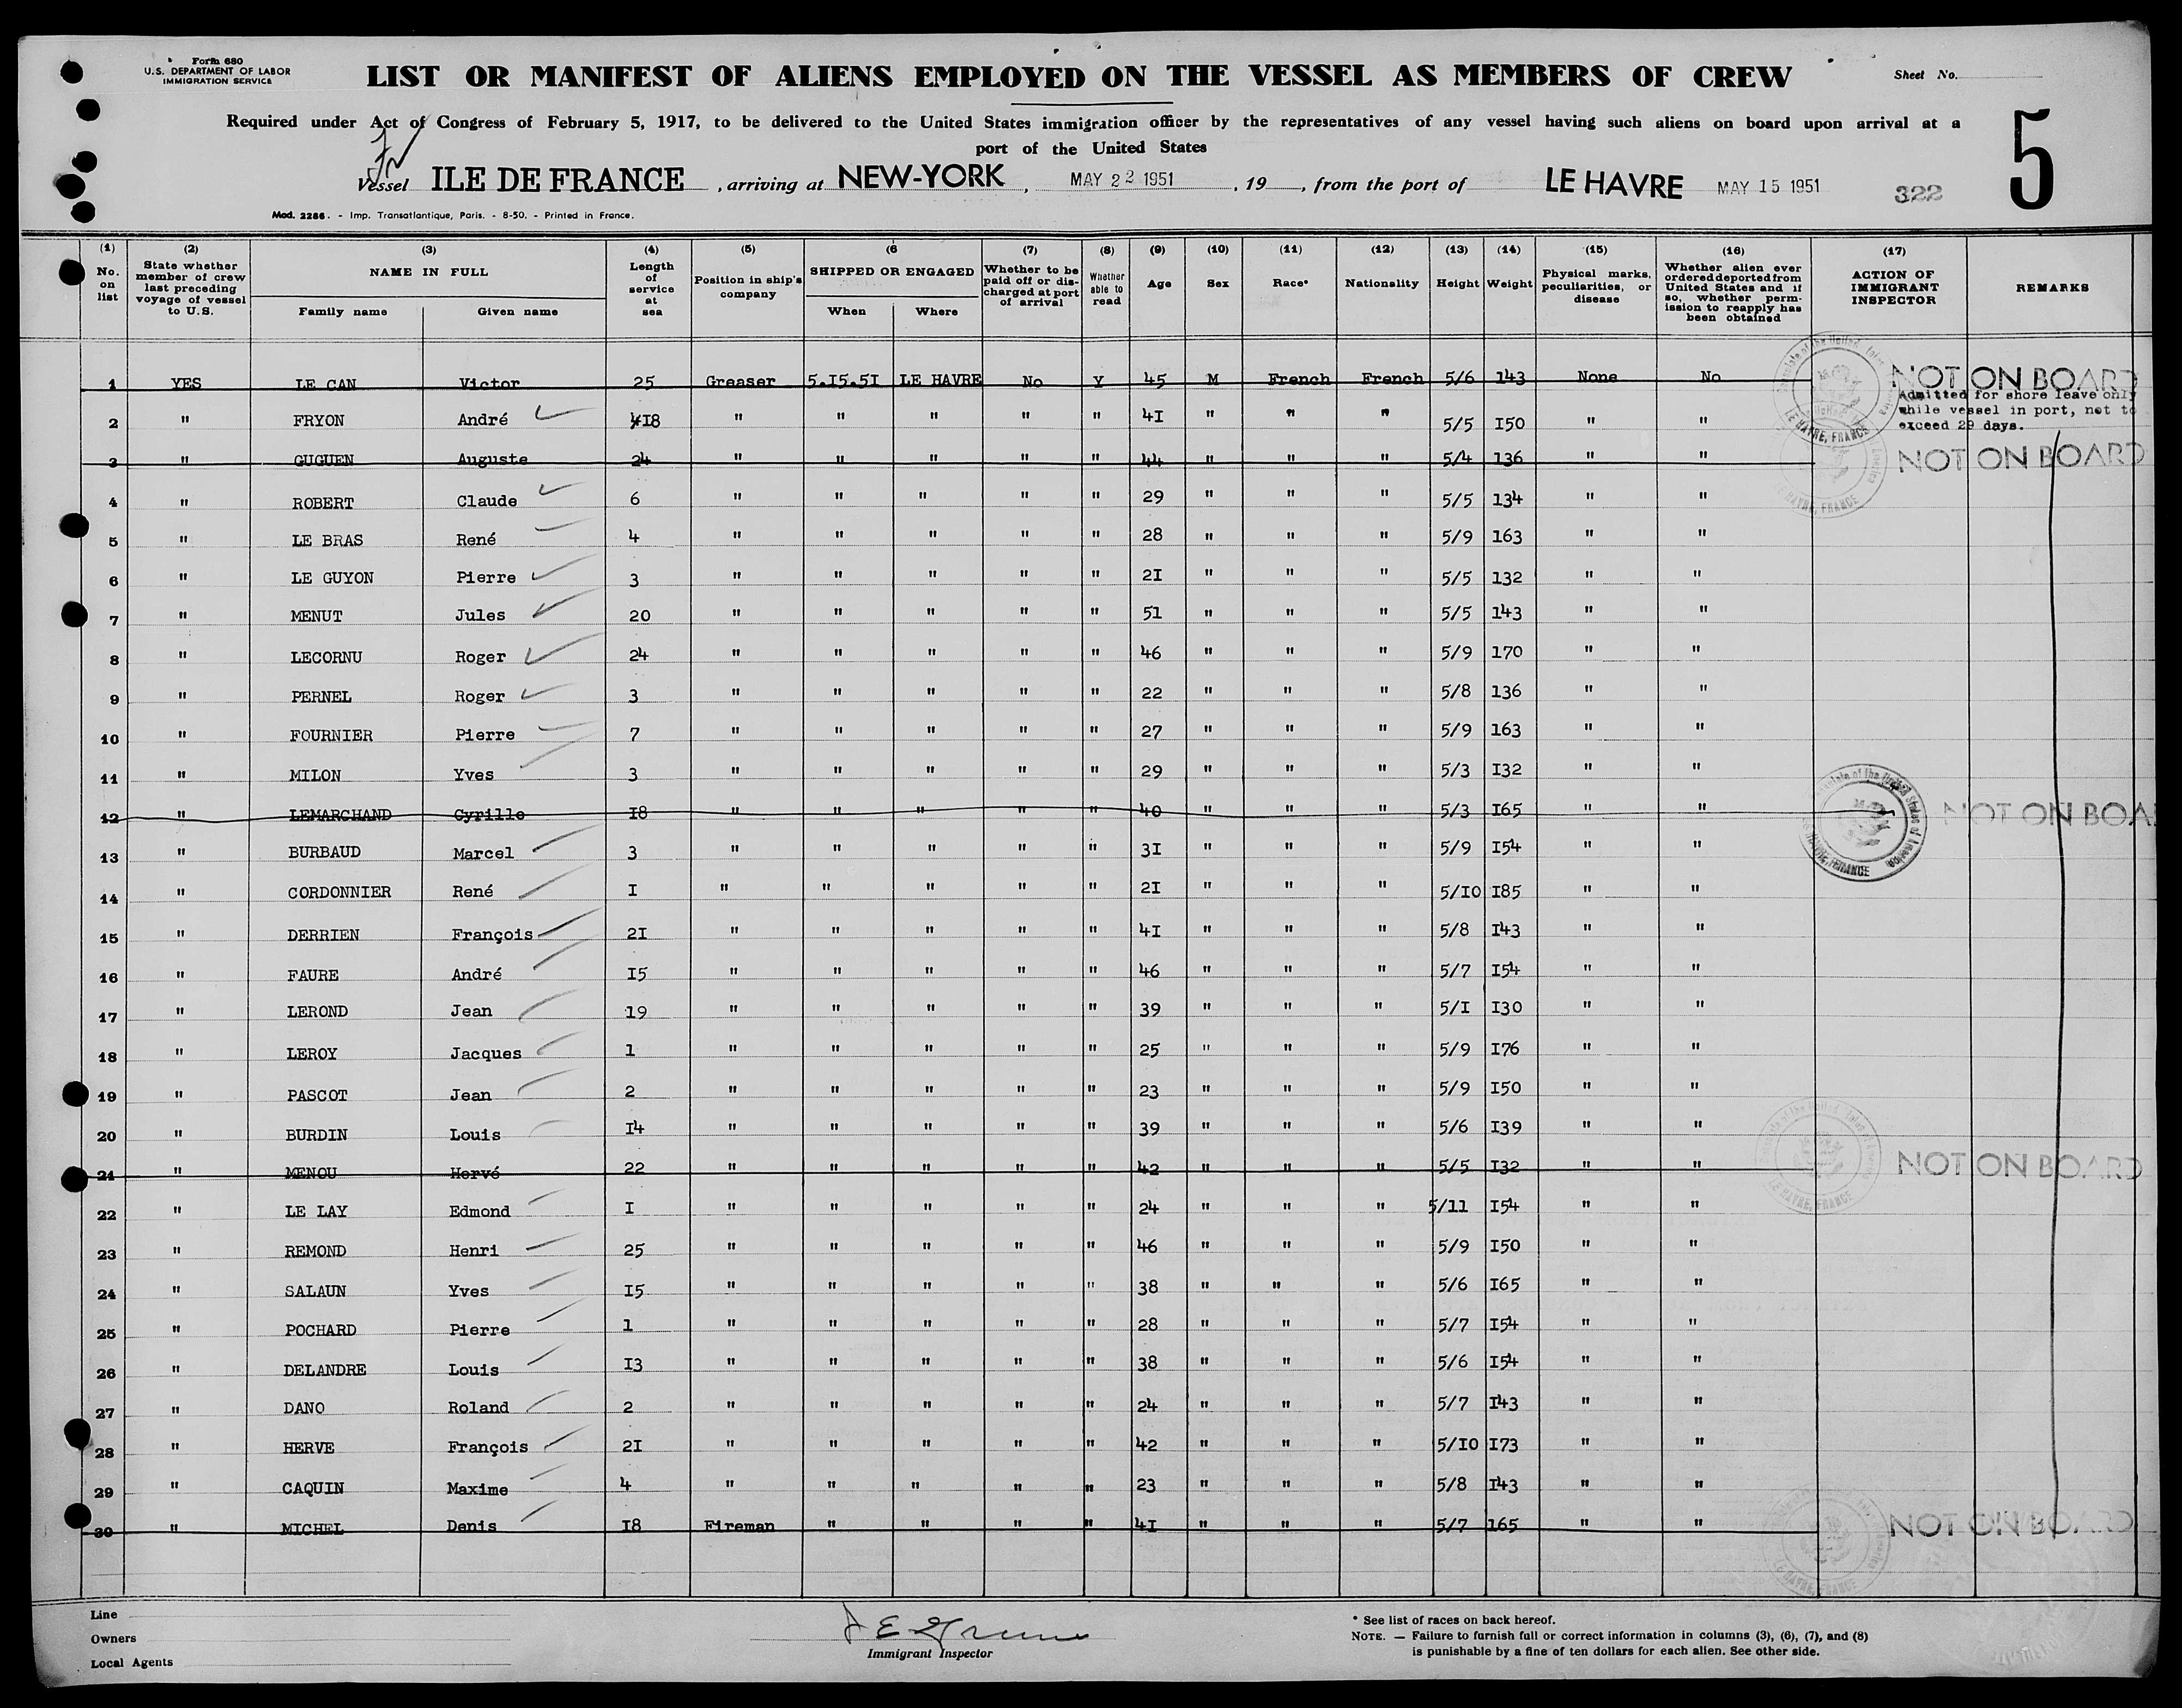 Form 680
U.S. DEPARTMENT OF LABOR
IMMIGRATION SERVICE
LIST OR MANIFEST OF ALIENS EMPLOYED ON THE VESSEL AS MEMBERS OF CREW
Sheet No.
Required under Act of Congress of February 5, 1917, to be delivered to the United States immigration officer by the representatives of any vessel having such aliens on board upon arrival at a
port of the United States
5
Vessel ILE DE FRANCE, arriving at NEW-YORK, MAY 22 1951, 19, from the port of LE HAVRE MAY 15 1951 322
Mod. 2286. - Imp. Transatlantique, Paris. - 8-50. - Printed in France.
(1) No. on list (2) State whether member of crew last preceding voyage of vessel to U.S. (3) NAME IN FULL Family name Given name (4) Length of service at sea (5) Position in ship's company (6 SHIPPED OR ENGAGED When Where (7) Whether to be paid off or discharged at port of arrival (8) Whether able to read (9) Age (10) Sex (11) Race* (12) Nationality (13) Height (14) Weight (15) Physical marks, peculiarities, or disease (16) Whether alien ever ordered deported from United States and if so, whether permission to reapply has been obtained (17) ACTION OF IMMIGRANT INSPECTOR REMARKS
1 YES LE CAN Victor 25 Greaser 5.15.51 LE HAVRE No Y 45 M French French 5/6 143 None No NOT ON BOARD
Admitted for shore leave only
while vessel in port, not to
exceed 29 days.
2 " FRYON André 18 " " " " " 41 " " " 5/5 150 " "
3 " GUGUEN Auguste 24 " " " " " 44 " " " 5/4 136 " " NOT ON BOARD
4 " ROBERT Claude 6 " " " " " 29 " " " 5/5 134 " "
5 " LE BRAS René 4 " " " " " 28 " " " 5/9 163 " "
6 " LE GUYON Pierre 3 " " " " " 21 " " " 5/5 132 " "
7 " MENUT Jules 20 " " " " " 51 " " " 5/5 143 " "
8 " LECORNU Roger 24 " " " " " 46 " " " 5/9 170 " "
9 " PERNEL Roger 3 " " " " " 22 " " " 5/8 136 " "
10 " FOURNIER Pierre 7 " " " " " 27 " " " 5/9 163 " "
11 " MILON Yves 3 " " " " " 29 " " " 5/3 132 " "
12 " LEMARCHAND Cyrille 18 " " " " " 40 " " " 5/3 165 " " NOT ON BOA
13 " BURBAUD Marcel 3 " " " " " 31 " " " 5/9 154 " "
14 " CORDONNIER René 1 " " " " " 21 " " " 5/10 185 " "
15 " DERRIEN François 21 " " " " " 41 " " " 5/8 143 " "
16 " FAURE André 15 " " " " " 46 " " " 5/7 154 " "
17 " LEROND Jean 19 " " " " " 39 " " " 5/1 130 " "
18 " LEROY Jacques 1 " " " " " 25 " " " 5/9 176 " "
19 " PASCOT Jean 2 " " " " " 23 " " " 5/9 150 " "
20 " BURDIN Louis 14 " " " " " 39 " " " 5/6 139 " "
21 " MENOU Hervé 22 " " " " " 42 " " " 5/5 132 " " NOT ON BOARD
22 " LE LAY Edmond 1 " " " " " 24 " " " 5/11 154 " "
23 " REMOND Henri 25 " " " " " 46 " " " 5/9 150 " "
24 " SALAUN Yves 15 " " " " " 38 " " " 5/6 165 " "
25 " POCHARD Pierre 1 " " " " " 28 " " " 5/7 154 " "
26 " DELANDRE Louis 13 " " " " " 38 " " " 5/6 154 " "
27 " DANO Roland 2 " " " " " 24 " " " 5/7 143 " "
28 " HERVE François 21 " " " " " 42 " " " 5/10 173 " "
29 " CAQUIN Maxime 4 " " " " " 23 " " " 5/8 143 " "
30 " MICHEL Denis 18 Fireman " " " " 41 " " " 5/7 165 " " NOT ON BOARD
Line
Owners
Local Agents
Immigrant Inspector
* See list of races on back hereof.
NOTE. — Failure to furnish full or correct information in columns (3), (6), (7), and (8)
is punishable by a fine of ten dollars for each alien. See other side.